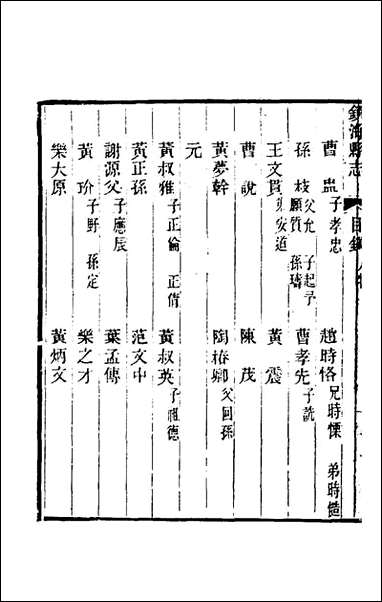 鎮海縣志 目錄 人物
曹盅子孝忠 趙時恪兄時慄 弟時慥
孫枝父允 子起予 願質 孫璹 曹孝先子說
王文貫弟安道 黃震
曹說 陳茂
黃夢幹 陶椿卿父回孫
元
黃叔雅子正倫 正儁 黃叔英子祖德
黃正孫 范文中
謝源父子應辰 葉孟傳
黃玠子野 孫定 樂之才
樂大原 黃炳文